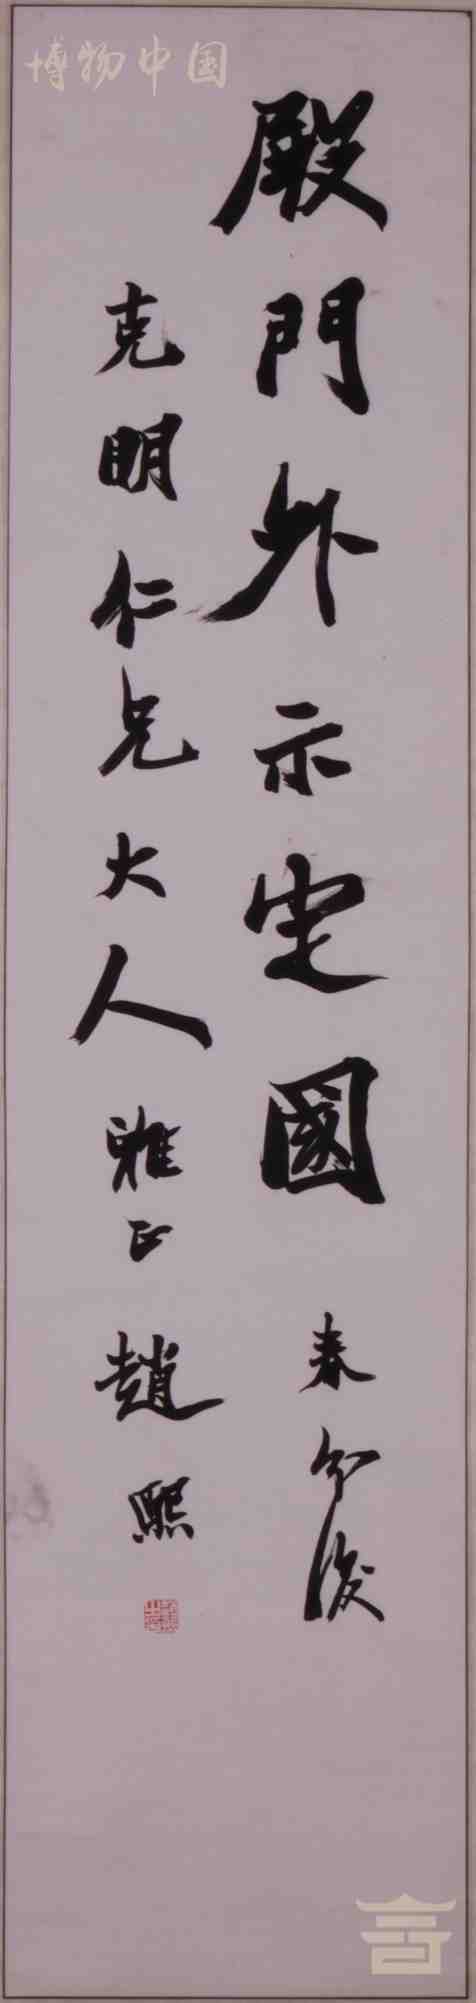 博物中国
殿門外示定國
春分後
克明仁兄大人雅正趙熙